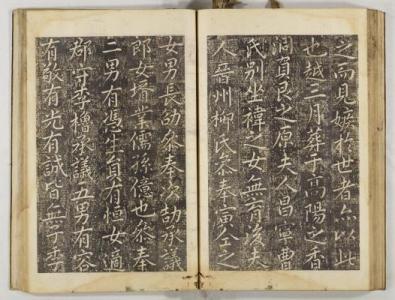 之而見嫉於世者亦以此
也越三月葬于高陽之香
洞負艮之原夫人昌寧曹
氏別坐禕之女無育後夫
人晉州柳氏參奉寅仝之
女男長劼參奉次劼承議
郎女壻業儒孫億也參奉
二男有憑生員有恒女適
郡守李櫓承議五男有容
有敬有光有誠皆無子季